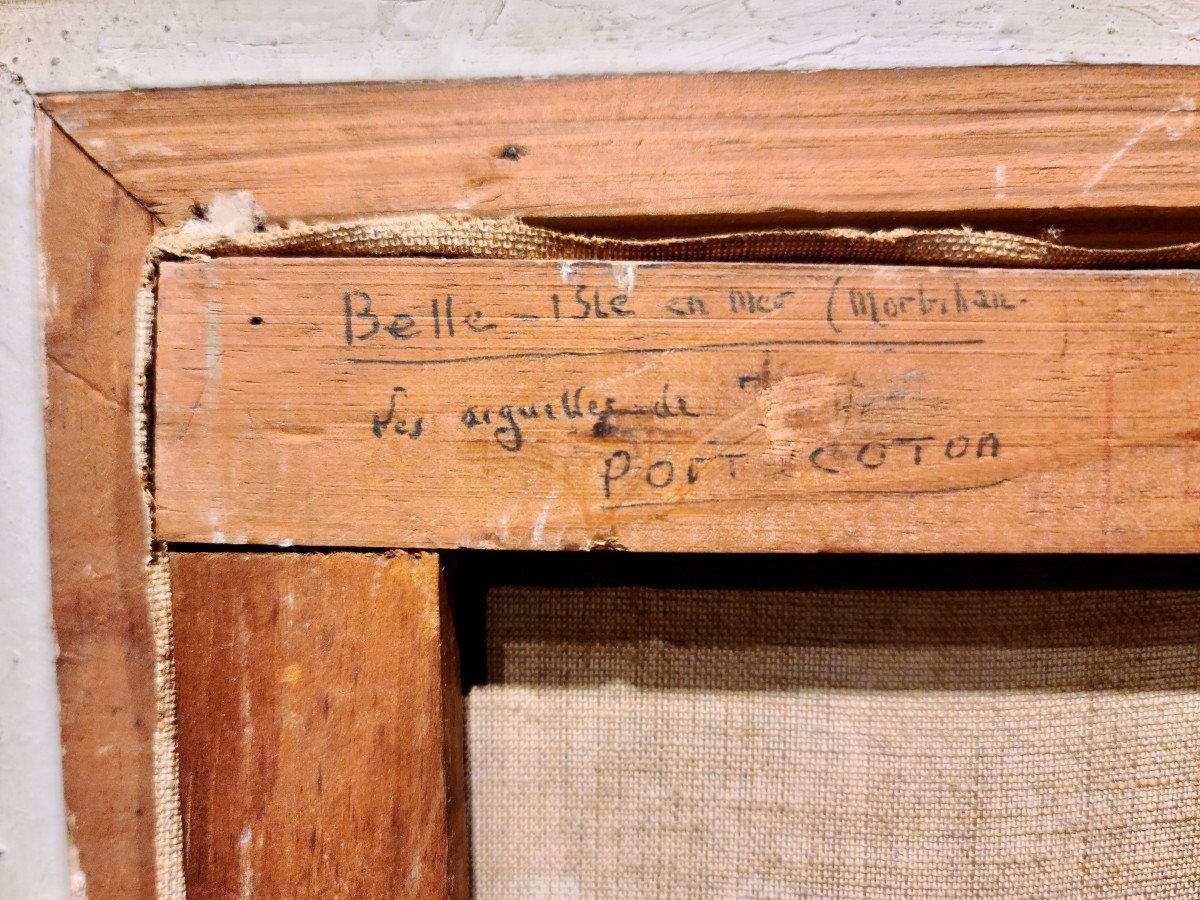 Belle-Isle en mer (Morbihan.
Les aiguilles de
PORT COTON